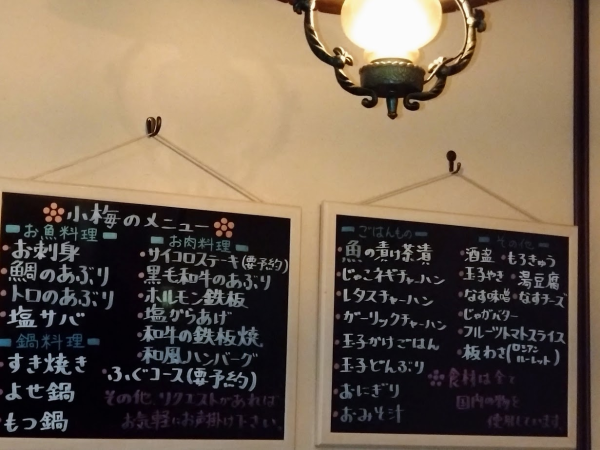 小梅のメニュー
お魚料理
お刺身
鯛のあぶり
トロのあぶり
塩サバ
鍋料理
すき焼き
よせ鍋
もつ鍋
お肉料理
サイコロステーキ(要予約)
黒毛和牛のあぶり
ホルモン鉄板
塩からあげ
和牛の鉄板焼
和風ハンバーグ
ふぐコース(要予約)
その他、リクエストがあれば
お気軽にお声掛け下さい。
ごはんもの
魚の漬け茶漬
じゃこネギチャーハン
レタスチャーハン
ガーリックチャーハン
玉子かけごはん
玉子どんぶり
おにぎり
おみそ汁
その他
酒盗・もろきゅう
玉子やき・湯豆腐
なす味噌・なすチーズ
じゃがバター
フルーツトマトスライス
板わさ(ロシアンルーレット)
食材は全て
国内の物を
使用しています。